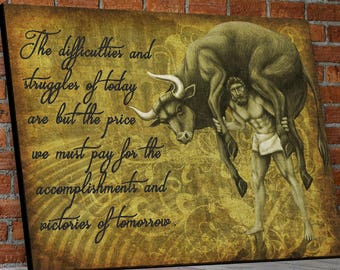 The difficulties and
struggles of today
are but the price
we must pay for the
accomplishments and
victories of tomorrow.